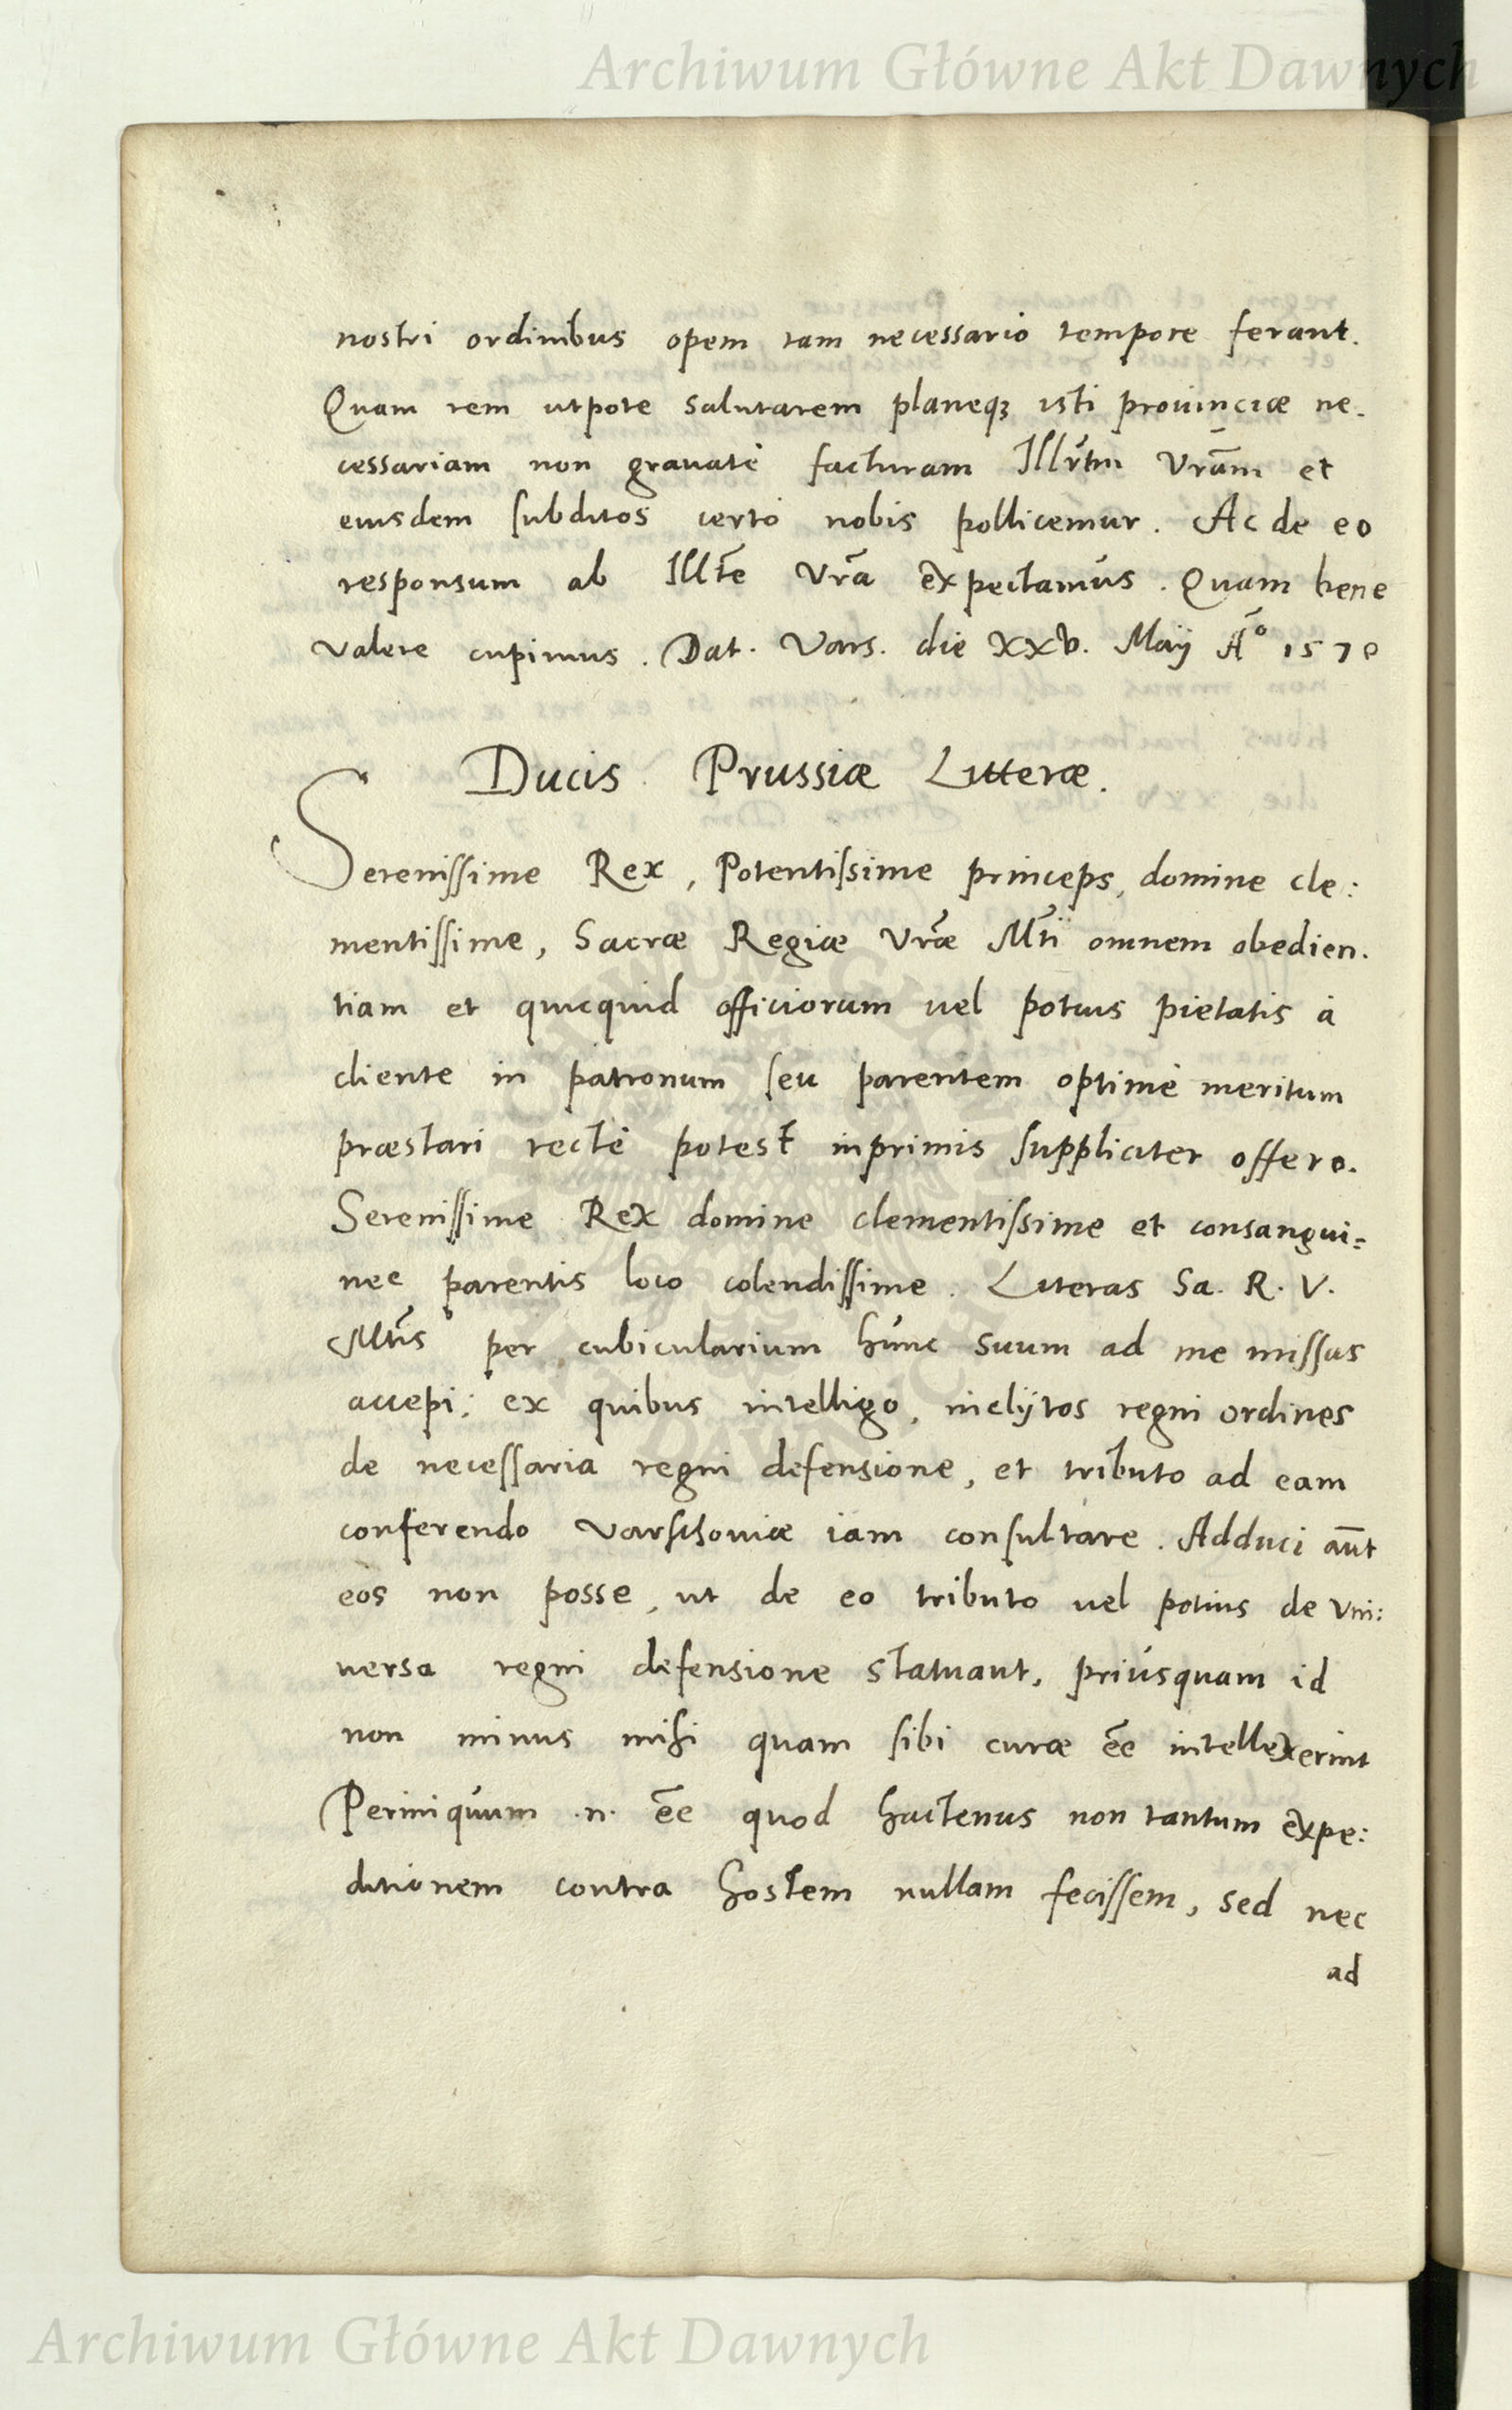 Archiwum Główne Akt Dawnych
nostri ordinibus opem tam necessario tempore ferant.
Quam rem utpote salutarem planeqꝫ isti prouinciæ ne-
cessariam non grauatè facturam Illrẽm Vrãm et
eiusdem subditos certò nobis pollicemur. Ac de eo
responsum ab Illtẽ Vrã expectamus. Quam bene
valere cupimus. Dat. Vars. die XXV. Maÿ A° 1570
Ducis Prussiæ Litteræ.
Serenissime Rex, Potentissime princeps, domine cle:
mentissime, Sacræ Regiæ Vræ̃ Mtĩ omnem obedien-
tiam et quicquid officiorum vel potius pietatis à
cliente in patronum seu parentem optimè meritum
præstari rectè potest inprimis suppliciter offero.
Serenissime Rex domine clementissime et consangui=
nee parentis loco colendissime. Literas Sa. R. V.
Mtis per cubicularium hunc suum ad me missas
accepi: ex quibus intelligo, inclÿtos regni ordines
de necessaria regni defensione, et tributo ad eam
conferendo Varschouiæ iam consultare. Adduci aũt
eos non posse, ut de eo tributo vel potius de vni:
uersa regni defensione statuant, priusquam id
non minus mihi quam sibi curæ ẽe intellexerint
Periniquum .n. ẽe quod hactenus non tantum expe:
ditionem contra hostem nullam fecissem, sed nec
ad
Archiwum Główne Akt Dawnych